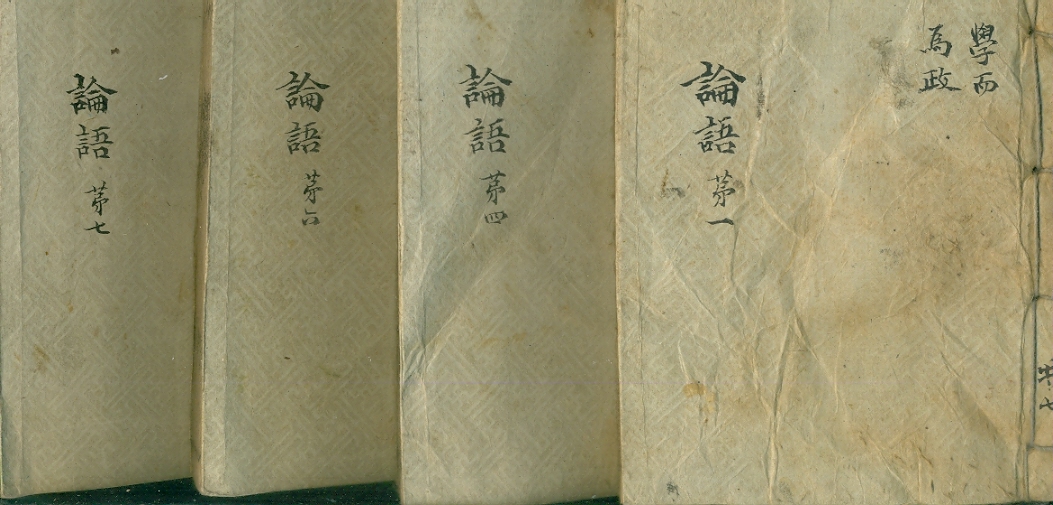 共七
學而
為政
論語 苐一
論語 苐四
論語 苐六
論語 苐七